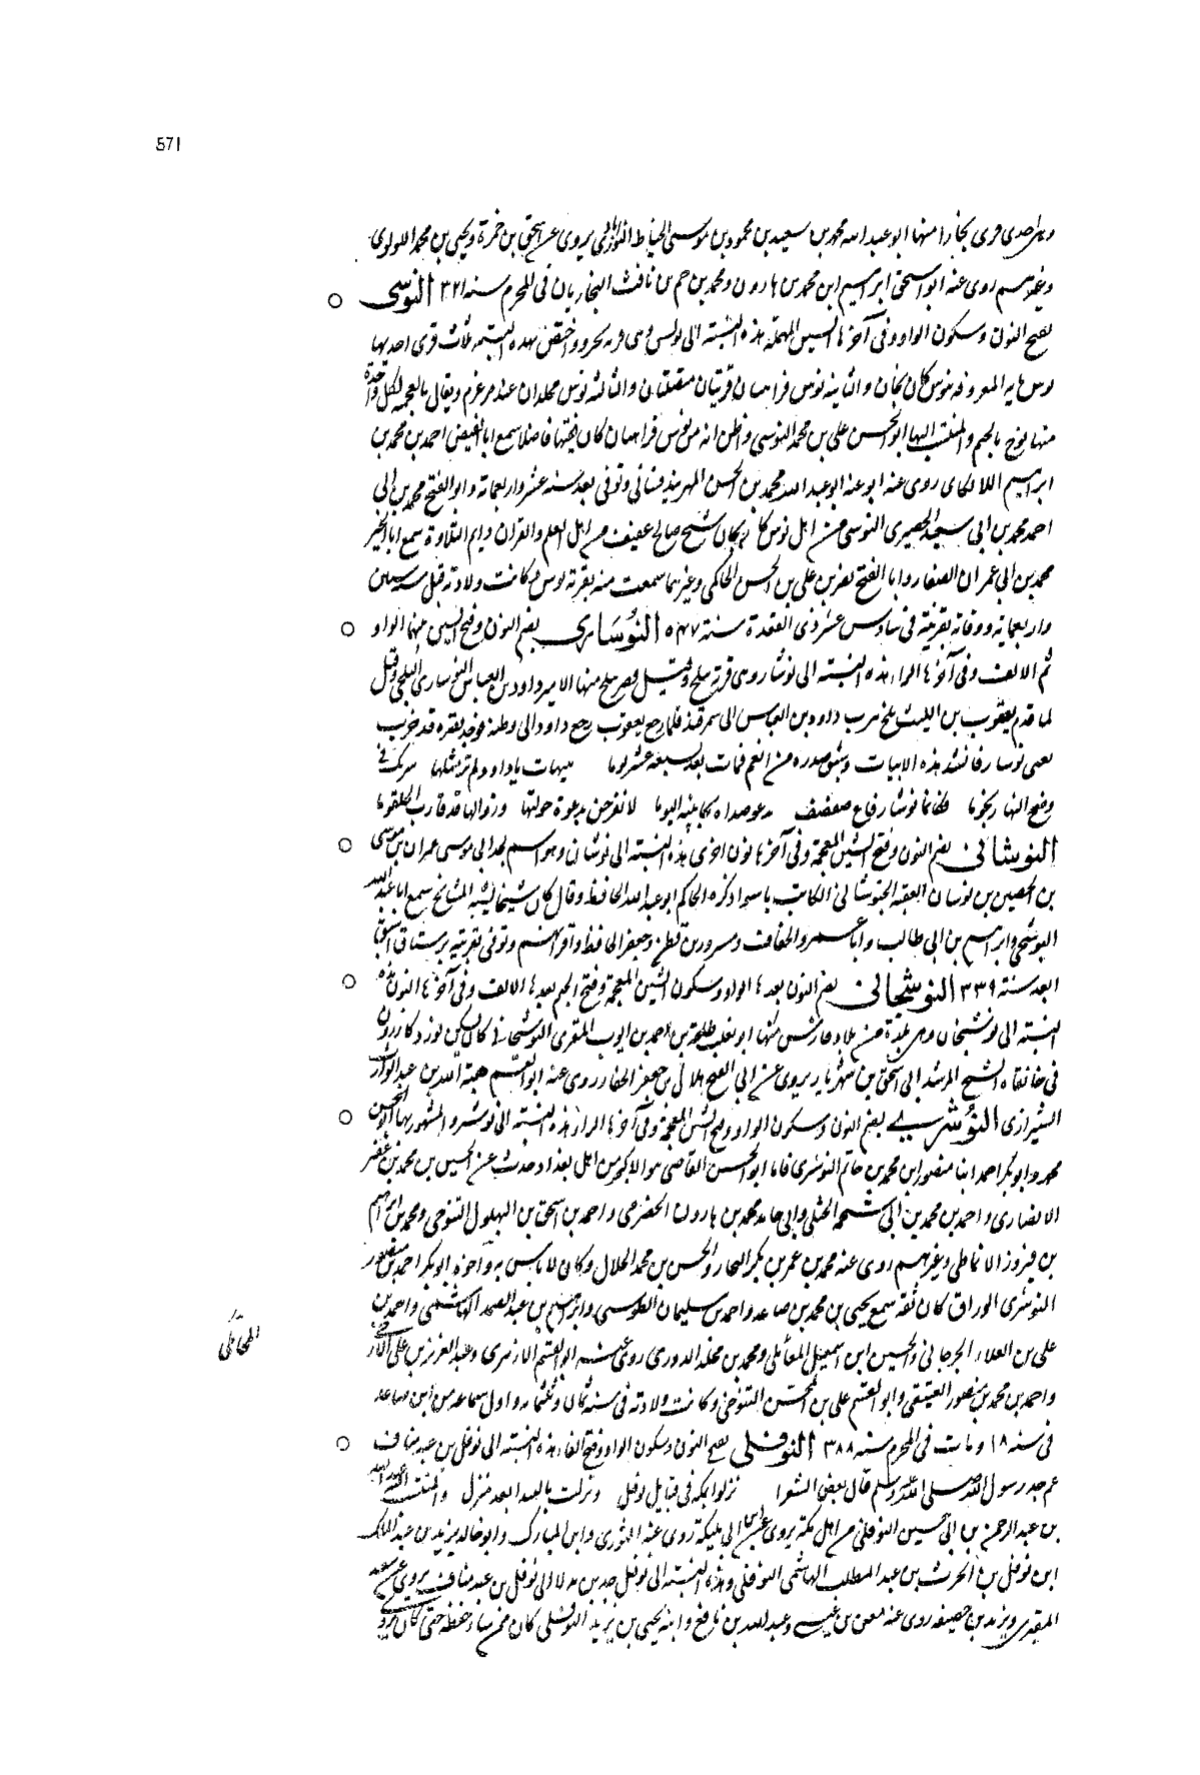 571
وهى احدى قرى بخارا منها ابو عبد الله محمد بن سعيد بن محمود بن موسى الخياط يروى عن اسحق بن حمزة ويحيى بن محمد اللولوى
وغيرهم روى عنه ابو اسحق ابراهيم ابن محمد بن هارون ومحمد بن حم بن ناقب البخاريان فى المحرم سنه ٣٢١ النوسى
بفتح النون وسكون الواو وفى آخرها السين المهملة هذه النسبة الى نوس وهى قريه بمرو واختص بهذه النسبه ثلاث قرى احديها
نوس المعروفه بنوس كاركان والثانيه نوس فراهينان قريتان متصلتان والثالثه نوس مخلدان عند مرغرم ويقال بالعجميه لكل واحدة
منها نوج بالجيم والمنتسب اليها ابو الحسن على بن محمد النوسى واظن انه من نوس فراهينان كان فقيها فاضلا سمع ابا الفيض احمد بن محمد بن
ابراهيم اللالكاى روى عنه ابو عبد الله محمد بن الحسن المهربندقشائى وتوفى بعد سنه عشر واربعمائة وابو الفتح محمد بن ابى
احمد محمد بن ابى سعيد الحصيرى النوسى من اهل نوس كاركان شيخ صالح عفيف من اهل العلم والقران دايم التلاوة سمع ابا الخير
محمد بن ابى عمران الصفار وابا الفتح نصر بن على بن الحسن الحاكمى وغيرهما سمعت منه بقريته نوس وكانت ولادته قبل سنه ستين
واربعمايه ووفاته بقريته فى سادس عشر ذى القعدة سنة ٥٤٧ النُوسَارى بضم النون وفتح السين بينهما الواو
ثم الالف وفى آخرها الراء هذه النسبة الى نوسار وهى قرية ببلخ وقيل قصر ببلخ منها الامير داود بن العباس النوسارى البلخى وقيل
لما قدم يعقوب بن الليث بلخ هرب داود بن العباس الى سمرقند فلما رجع يعقوب رجع داود الى وطنه فوجد قصره قد خرب
يعنى نوسار فانشد هذه الابيات وشق صدره من الغم فمات بعد سبعة عشر يوما هيهات يا داود لم تر مثلها سيريك فى
وضح النهار نجوما فكانما نوسار قاع صفصف يدعو صداه بجانبيه البوما لا تفرحن بدعوة خولتها وزوالها قد قارب الحلقوما
النوشانى بضم النون وفتح الشين المعجمة وفى آخرها نون اخرى هذه النسبة الى نوشان وهو اسم لجد ابى موسى عمران بن موسى
بن الحصين بن نوشان الفقيه الخبوشانى الكاتب باستوا ذكره الحاكم ابو عبد الله الحافظ وقال كان شيخا يشبه المشايخ سمع ابا عبد الله
البوشنجى وابراهيم بن ابى طالب وابا عمرو الخفاف ومسدد بن قطن وجعفر الحافظ واقرانهم وتوفى بقريته برستاق
بعد سنة ٣٣٩ النوشجانى بضم النون بعدها الواو وسكون الشين المعجمة وفتح الجيم بعدها الالف وفى آخرها النون هذه
النسبة الى نوشنجان وهى بلدة من بلاد فارس منها ابو تغلب طلحة بن احمد بن ايوب المقرى النوشجانى كان يسكن كازرون
فى خانقاه الشيخ المرشد ابى اسحق بن شهريار يروى عن ابى الفتح هلال بن جعفر الحفار روى عنه ابو القسم هبة الله بن عبد الوارث
الشيرازى النُوْشَرى بضم النون وسكون الواو وفتح الشين المعجمة وفى آخرها الراء هذه النسبة الى نوشر والمشهور بها ابو الحسن
محمد وابو بكر احمد ابنا منصور ابن محمد بن حاتم النوشرى فاما ابو الحسن القاضى هو الاكبر من اهل بغداد حدث عن الحسين بن محمد بن عفير
الانصارى واحمد بن محمد بن ابى شحمه الختلى وابى حامد محمد بن هارون الحضرمى واحمد بن اسحق بن البهلول التنوخى ومحمد بن ابراهيم
بن فيروز الانماطى وغيرهم روى عنه محمد بن عمر بن بكير النجار والحسن بن محمد الخلال وكان لا باس به واخوه ابو بكر احمد بن منصور
النوشرى الوراق كان ثقه سمع يحيى بن محمد بن صاعد واحمد بن سليمان الطوسى وابراهيم بن عبد الصمد الهاشمى واحمد بن
على بن العلاء الجرجانى والحسين ابن اسمعيل المحاملى ومحمد بن مخلد الدورى روى عنه ابو القسم الازهرى وعبد العزيز بن على الازجى
المحاملى
واحمد بن محمد بن منصور العتيقى وابو القسم على بن المحسن التنوخى وكانت ولادته فى سنه ثمان وثلثمائه واول سماعه من ابن صاعد
فى سنه ١٨ ومات فى المحرم سنه ٣٨٨ النوفلى بفتح النون وسكون الواو وفتح الفاء هذه النسبة الى نوفل بن عبد مناف
عم جد رسول الله صلى الله عليه وسلم قال بعض الشعرا نزلوا بمكه فى قبايل نوفل ونزلت بالبيدا ابعد منزل والمنتسب اليه عبد الله
بن عبد الرحمن بن ابى حسين النوفلى من اهل مكة يروى عن ابن ابى مليكة روى عنه الثورى وابن المبارك وابو خالد يزيد بن عبد الملك
ابن نوفل بن الحرث بن عبد المطلب الهاشمى النوفلى وهذه النسبة الى نوفل جد بن هذا لا الى نوفل بن عبد مناف يروى عن سعيد
المقبرى ويزيد بن خصيفه روى عنه معن بن عيسى وعبد الله بن نافع وابنه يحيى بن يزيد النوفلى كان ممن ساء حفظه حتى كان يروى